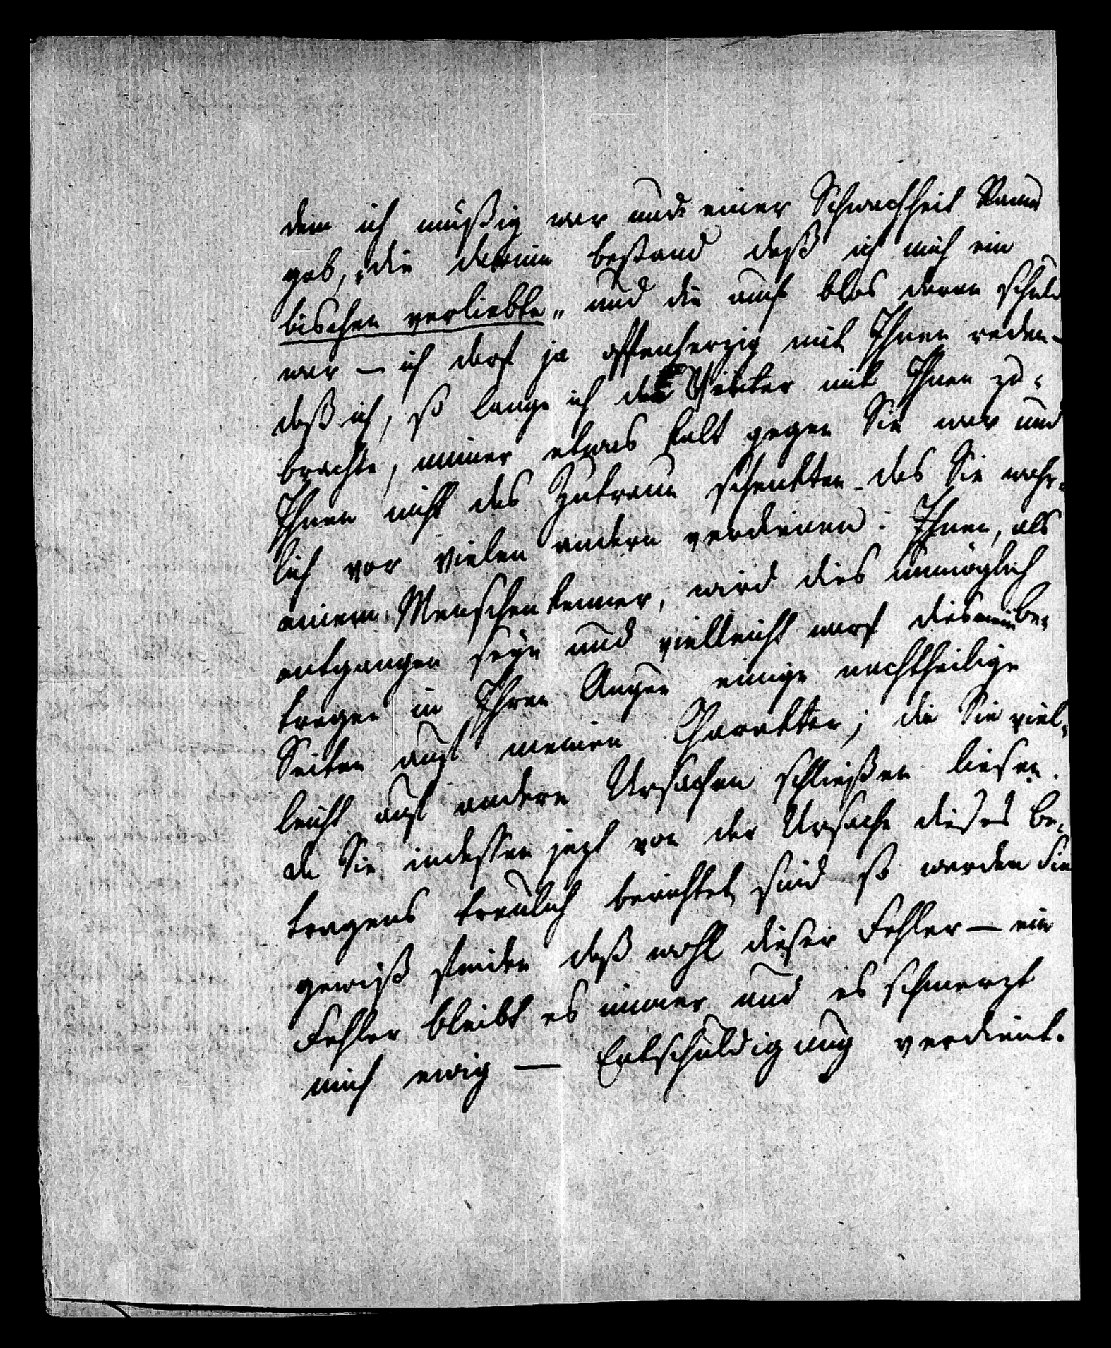 dem ich müßig war und einer Schwachheit Raum
gab, „die darinn bestand daß ich mich ein
bischen verliebte„ und die auch blos daran schuld
war — ich darf ja offenherzig mit Ihnen reden —
daß ich, so lange ich den Winter mit Ihnen zu-
brachte, immer etwas kalt gegen Sie war und
Ihnen nicht das Zutraun schenkte das Sie wahr-
lich vor vielen andern verdienen. Ihnen, als
einem Menschenkenner, wird dies unmöglich
entgangen seyn und vielleicht warf dies mein Be-
tragen in Ihren Augen einige nachtheilige
Seiten auf meinen Charakter; die Sie viel-
leicht auf andere Ursachen schließen liesen.
da Sie indessen jezt von der Ursache dieses Be-
tragens treulich berichtet sind so werden Sie
gewiß finden daß wohl dieser Fehler — ein
Fehler bleibt es immer und es schmerzt
mich ewig — Entschuldigung verdient.